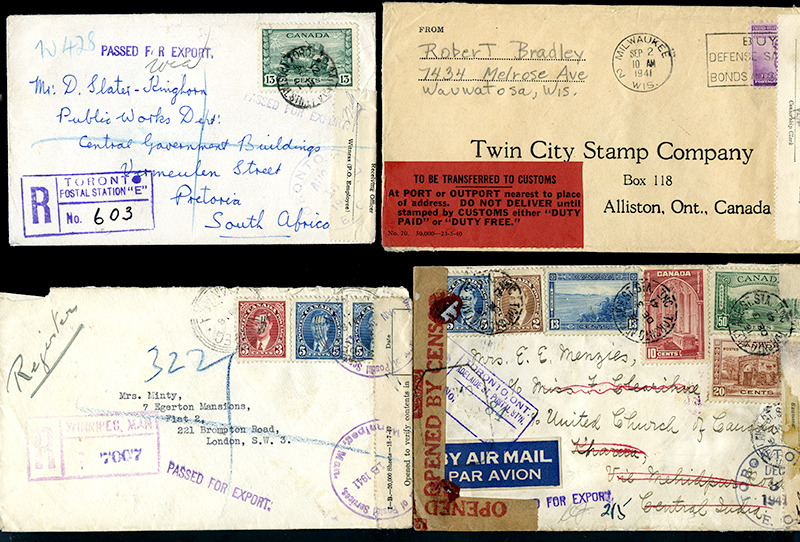 PASSED FOR EXPORT.
CANADA
13 CENTS 13
PASSED FOR EXPORT
Public Works Dept:
Central Government Buildings
Vermeulen Street
Pretoria
South Africa
TORONTO
POSTAL STATION "E"
R No. 603
Witness (P.O. Employee)
Receiving Officer
FROM
Robert Bradley
7434 Melrose Ave
Wauwatosa, Wis.
MILWAUKEE
SEP 2
10 AM
1941
2 WIS.
BUY
DEFENSE SA
BONDS
Twin City Stamp Company
Box 118
Alliston, Ont., Canada
TO BE TRANSFERRED TO CUSTOMS
At PORT or OUTPORT nearest to place
of address. DO NOT DELIVER until
stamped by CUSTOMS either "DUTY
PAID" or "DUTY FREE."
Register
322
3 3
5 5
5
Mrs. Minty,
7 Egerton Mansions,
Flat 2,
221 Brompton Road,
London, S.W. 3.
R WINNIPEG, MAN
7007
PASSED FOR EXPORT.
Postal Services
Winnipeg, Man.
1941
Date
Opened to verify contents in
OPENED BY CENSOR
OPENED
5 5
2 2
13 13
CANADA
10 CENTS 10
CANADA
50
20 CENTS
Mrs. E. E. Menzies,
United Church of Canada
Central India
TORONTO, ONT.
ADELAIDE ST. POSTAL STN.
NO.
BY AIR MAIL
PAR AVION
D FOR EXPORT.
215
TORONTO
DEC
1941